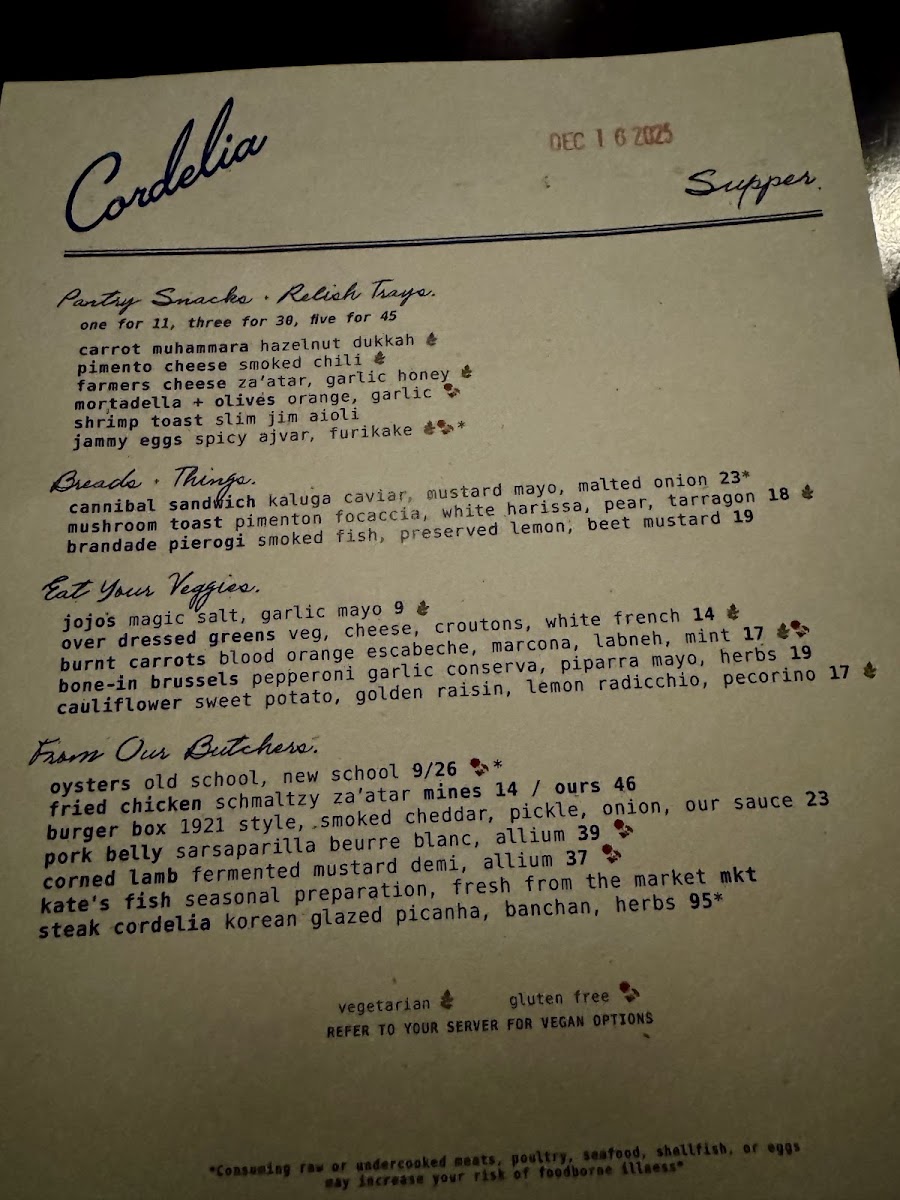 Cordelia
DEC 16 2025
Supper.
Pantry Snacks · Relish Trays.
one for 11, three for 30, five for 45
carrot muhammara hazelnut dukkah
pimento cheese smoked chili
farmers cheese za'atar, garlic honey
mortadella + olives orange, garlic
shrimp toast slim jim aioli
jammy eggs spicy ajvar, furikake *
Breads · Things.
cannibal sandwich kaluga caviar, mustard mayo, malted onion 23*
mushroom toast pimenton focaccia, white harissa, pear, tarragon 18
brandade pierogi smoked fish, preserved lemon, beet mustard 19
Eat Your Veggies.
jojo's magic salt, garlic mayo 9
over dressed greens veg, cheese, croutons, white french 14
burnt carrots blood orange escabeche, marcona, labneh, mint 17
bone-in brussels pepperoni garlic conserva, piparra mayo, herbs 19
cauliflower sweet potato, golden raisin, lemon radicchio, pecorino 17
From Our Butchers.
oysters old school, new school 9/26 *
fried chicken schmaltzy za'atar mines 14 / ours 46
burger box 1921 style, smoked cheddar, pickle, onion, our sauce 23
pork belly sarsaparilla beurre blanc, allium 39
corned lamb fermented mustard demi, allium 37
kate's fish seasonal preparation, fresh from the market mkt
steak cordelia korean glazed picanha, banchan, herbs 95*
vegetarian gluten free
REFER TO YOUR SERVER FOR VEGAN OPTIONS
*Consuming raw or undercooked meats, poultry, seafood, shellfish, or eggs
may increase your risk of foodborne illness*